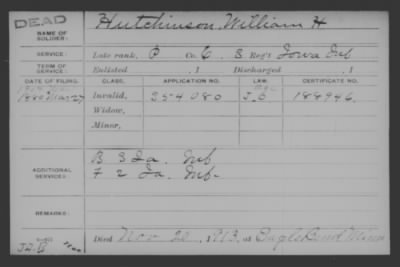 DEAD
NAME OF SOLDIER: Hutchinson, William H
SERVICE: Late rank, P Co. C. 3 Reg't Iowa Inf
TERM OF SERVICE: Enlisted , 1 Discharged , 1
DATE OF FILING. CLASS. APPLICATION NO. LAW. CERTIFICATE NO.
1880 Mar. 27 Invalid, 354080 188946.
Widow,
Minor,
ADDITIONAL SERVICES: B 3 Ia. Inf
F 2 Ia. Inf.
REMARKS:
Died Nov 20, 1913, at Eagle Bend Minn